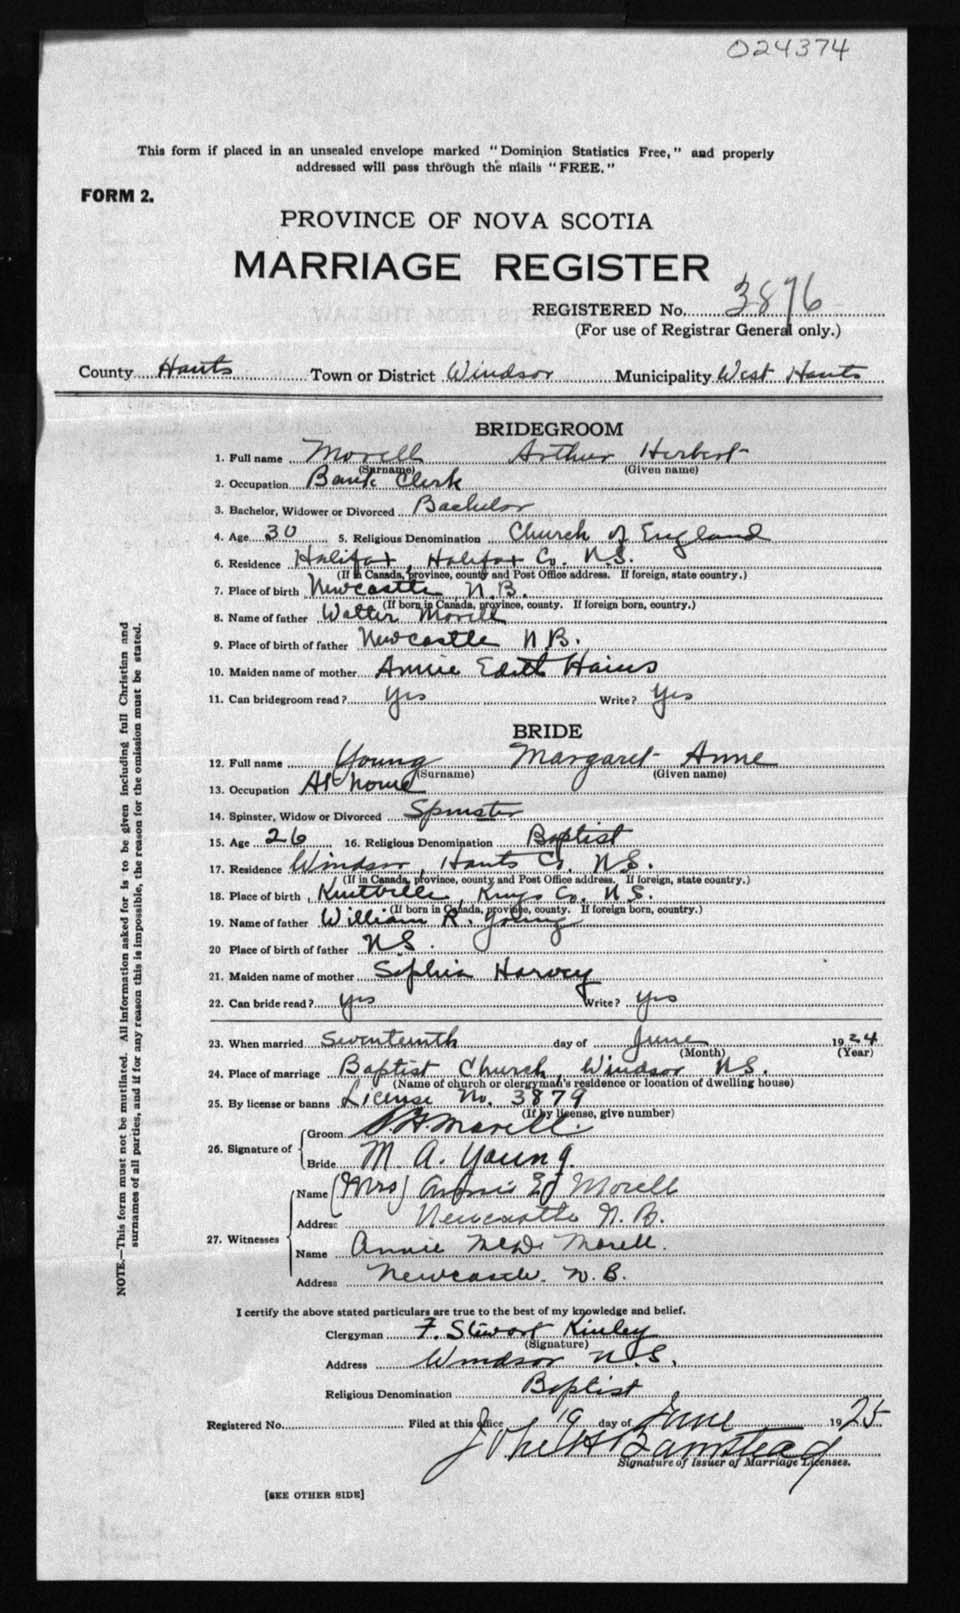 024374
This form if placed in an unsealed envelope marked "Dominion Statistics Free," and properly
addressed will pass through the mails "FREE."
FORM 2.
PROVINCE OF NOVA SCOTIA
MARRIAGE REGISTER
REGISTERED No. 3876
(For use of Registrar General only.)
County Hants Town or District Windsor Municipality West Hants
BRIDEGROOM
1. Full name Morell Arthur Herbert
(Surname) (Given name)
2. Occupation Bank Clerk
3. Bachelor, Widower or Divorced Bachelor
4. Age 30 5. Religious Denomination Church of England
6. Residence Halifax, Halifax Co. N.S.
(If in Canada, province, county and Post Office address. If foreign, state country.)
7. Place of birth Newcastle, N.B.
(If born in Canada, province, county. If foreign born, country.)
8. Name of father Walter Morell
9. Place of birth of father Newcastle N.B.
10. Maiden name of mother Annie Edith Hains
11. Can bridegroom read? Yes Write? Yes
BRIDE
12. Full name Young Margaret Anne
(Surname) (Given name)
13. Occupation At home
14. Spinster, Widow or Divorced Spinster
15. Age 26 16. Religious Denomination Baptist
17. Residence Windsor, Hants Co. N.S.
(If in Canada, province, county and Post Office address. If foreign, state country.)
18. Place of birth Kentville, Kings Co. N.S.
(If born in Canada, province, county. If foreign born, country.)
19. Name of father William R. Young
20 Place of birth of father N.S.
21. Maiden name of mother Sophia Harvey
22. Can bride read? Yes Write? Yes
23. When married Seventeenth day of June 1924
(Month) (Year)
24. Place of marriage Baptist Church, Windsor N.S.
(Name of church or clergyman's residence or location of dwelling house)
25. By license or banns License No. 3879
(If by license, give number)
26. Signature of
Groom A. H. Morell.
Bride M. A. Young.
27. Witnesses
Name (Mrs) Annie E. Morell
Address Newcastle N.B.
Name Annie McD. Morell.
Address Newcastle. N.B.
I certify the above stated particulars are true to the best of my knowledge and belief.
Clergyman F. Stewart Kinley
(Signature)
Address Windsor N.S.
Religious Denomination Baptist
Registered No. Filed at this office 19 day of June 1925
John H Bamstead
Signature of Issuer of Marriage Licenses.
[SEE OTHER SIDE]
NOTE.—This form must not be mutilated. All information asked for is to be given including full Christian and
surnames of all parties, and if for any reason this is impossible, the reason for the omission must be stated.